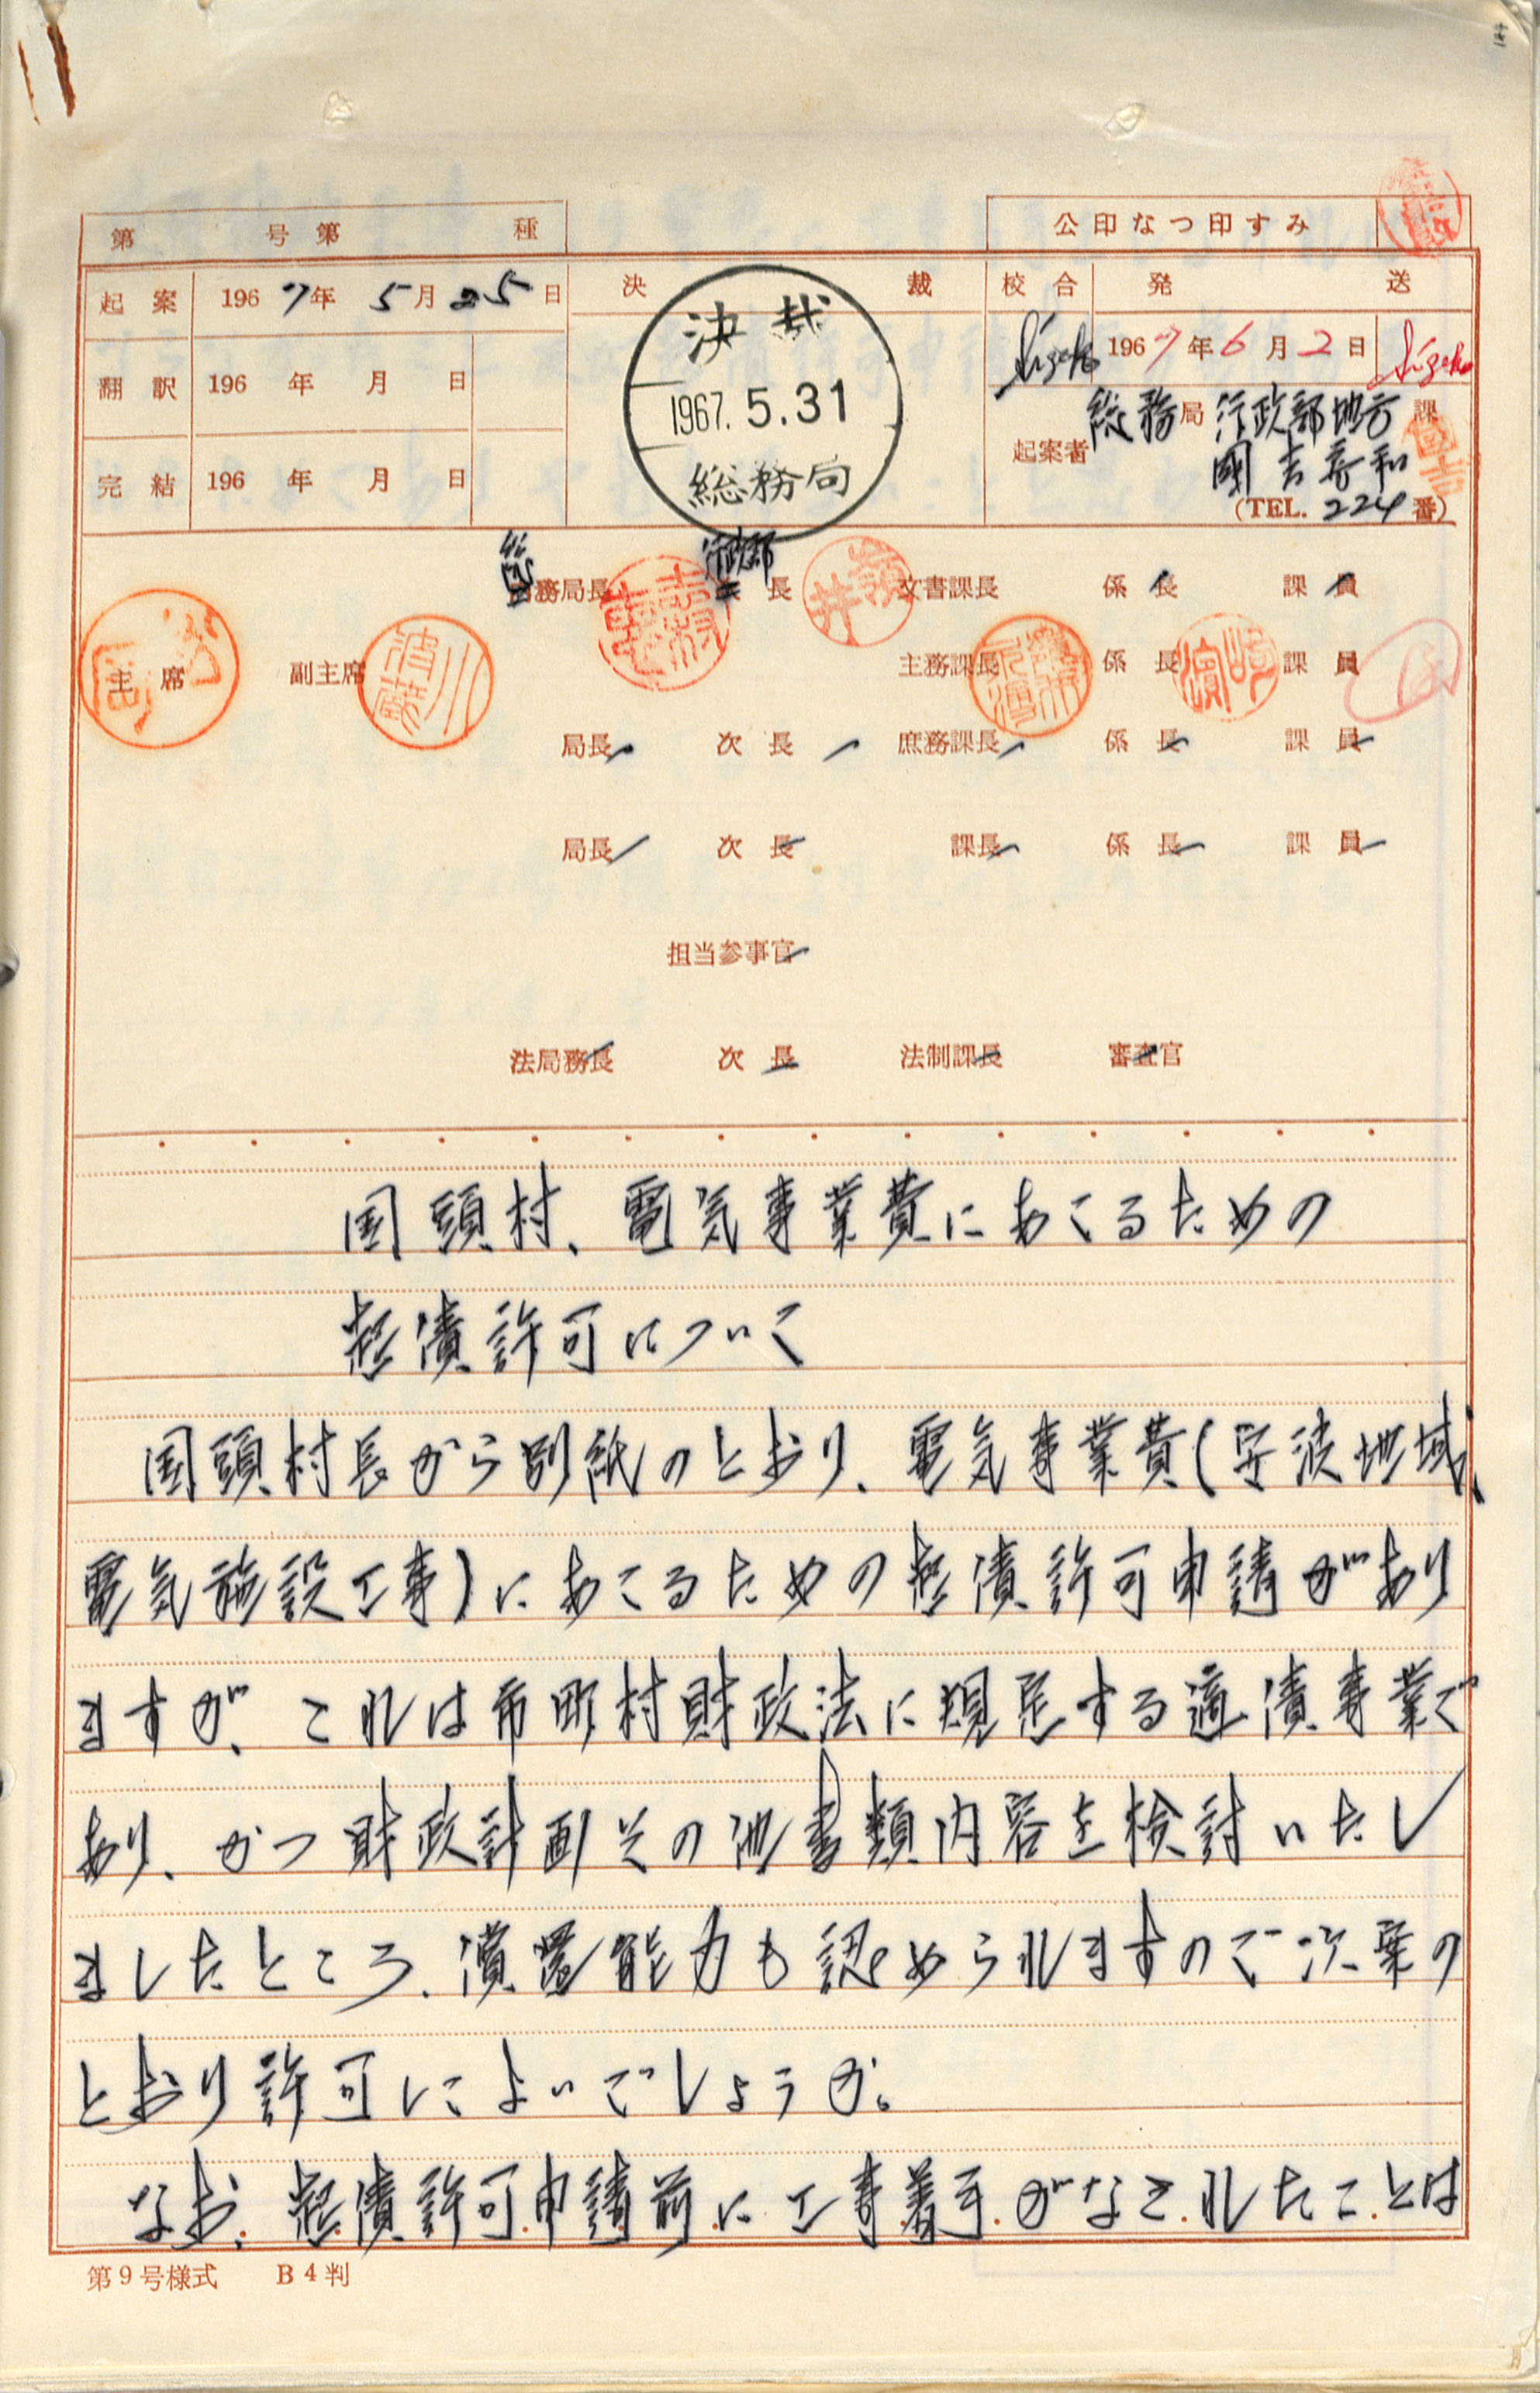 第 号第 種
公印なつ印すみ
起案 1967年 5月25日
決裁
校合
発送
決裁
1967.5.31
総務局
1967年6月2日
翻訳 196 年 月 日
完結 196 年 月 日
起案者 総務局 行政部地方課
國吉
(TEL. 224番)
総務局長 行政部長 文書課長 係長 課員
主席 副主席 主務課長 係長 課員
局長 次長 庶務課長 係長 課員
局長 次長 課長 係長 課員
担当参事官
法局務長 次長 法制課長 審査官
国頭村、電気事業費にあてるための
起債許可について
国頭村長から別紙のとおり、電気事業費(宇波地域、
電気施設工事)にあてるための起債許可申請があり
ますが、これは市町村財政法に規定する適債事業で
あり、かつ財政計画その他書類内容を検討いたし
ましたところ、償還能力も認められますので次案の
とおり許可してよいでしょうか。
なお、起債許可申請前に工事着手がなされたことは
第9号様式 B4判